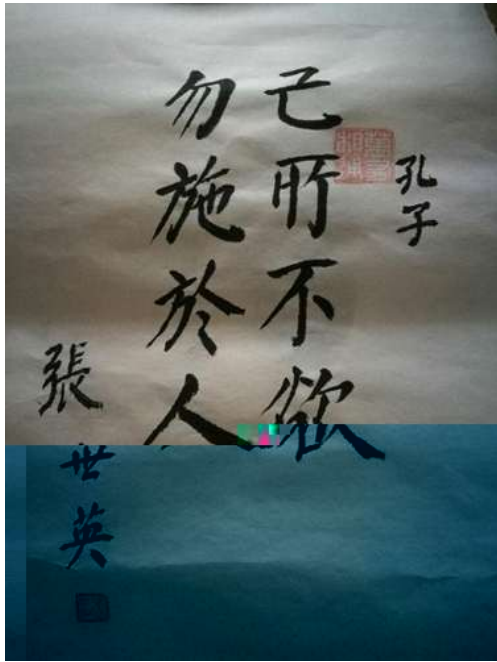 孔子
己所不欲
勿施於人
張世英